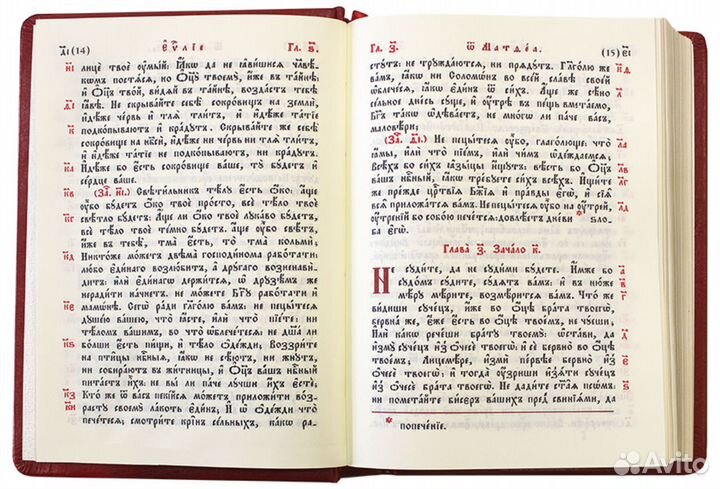 д҃і (14) Єѵⷢ҇ліе Гл. ѕ҃.
лицѐ твоѐ ᲂу҆мы́й: Ꙗ҆́кѡ да не ꙗ҆ви́шисѧ человѣ́-
кѡмъ постѧ́сѧ, но Ѻ҆ц҃у̀ твоемꙋ̀, и҆́же въ та́йнѣ:
и҆ Ѻ҆ц҃ъ тво́й, ви́дѧй въ та́йнѣ, возда́стъ тебѣ̀
ꙗ҆́вѣ. Не скрыва́йте себѣ̀ сокро́вищъ на землѝ,
и҆дѣ́же че́рвь и҆ тлѧ̀ тли́тъ, и҆ и҆дѣ́же та́тіе
подкопыва́ютъ и҆ кра́дꙋтъ. Скрыва́йте же себѣ̀
сокро́вище на нб҃сѝ, и҆дѣ́же ни че́рвь ни тлѧ̀ тли́тъ,
и҆ и҆дѣ́же та́тіе не подко́пываютъ, ни кра́дꙋтъ.
И҆дѣ́же бо є҆́сть сокро́вище ва́ше, тꙋ̀ бꙋ́детъ и҆
се́рдце ва́ше.
(За҄. н҃і.) Свѣти́льникъ тѣ́лꙋ є҆́сть ѻ҆́ко: а҆́ще
ᲂу҆́бо бꙋ́детъ ѻ҆́ко твоѐ про́сто, всѐ тѣ́ло твоѐ
свѣ́тло бꙋ́детъ: А҆́ще ли ѻ҆́ко твоѐ лꙋка́во бꙋ́детъ,
всѐ тѣ́ло твоѐ те́мно бꙋ́детъ. а҆́ще ᲂу҆́бо свѣ́тъ,
и҆́же въ тебѣ̀, тма̀ є҆́сть, то тма̀ кольмѝ:
Никто́же мо́жетъ двѣма̀ господи́нома рабо́тати:
лю́бо є҆ди́наго возлю́битъ, а҆ дрꙋга́го возненави́-
дитъ: и҆лѝ є҆ди́нагѡ держи́тсѧ, ѡ҆ дрꙋзѣ́мъ же
неради́ти на́чнетъ. не мо́жете Бг҃ꙋ рабо́тати и҆
мамѡ́нѣ. Сегѡ̀ ра́ди гл҃аго́лю ва́мъ, не пецы́тесѧ
дꙋше́ю ва́шею, что̀ ꙗ҆́сте, и҆лѝ что̀ пїе́те: ни
тѣ́ломъ ва́шимъ, во что̀ ѡ҆блече́тесѧ: не дш҃а̀ ли
бо́льши є҆́сть пи́щи, и҆ тѣ́ло ѻ҆де́жди; Воззри́те
на пти́цы нбⷭ҇ныѧ, ꙗ҆́кѡ не сѣ́ютъ, ни жнꙋ́тъ,
ни собира́ютъ въ жи́тницы, и҆ Ѻ҆ц҃ъ ва́шъ нбⷭ҇ный
пита́етъ и҆̀хъ. не вы́ ли па́че лꙋ́чши и҆́хъ є҆стѐ;
Кто́ же ѿ ва́съ пекі́йсѧ мо́жетъ приложи́ти во́з-
растꙋ своемꙋ̀ ла́коть є҆ди́нъ; И҆ ѡ҆ ѻ҆де́жди что̀
пече́тесѧ; смотри́те кри́нъ се́льныхъ, ка́кѡ ра-
Гл. з҃. Ѿ Матѳе́а. (15) є҃і
стꙋ́тъ: не трꙋжда́ютсѧ, ни прѧдꙋ́тъ. Гл҃аго́лю же
ва́мъ, ꙗ҆́кѡ ни Соломѡ́нъ во все́й сла́вѣ свое́й
ѡ҆блече́сѧ, ꙗ҆́кѡ є҆ди́нъ ѿ си́хъ. А҆́ще же сѣ́но
се́льное дне́сь сꙋ́ще, и҆ ᲂу҆́трѣ въ пе́щь вмета́емо,
Бг҃ъ та́кѡ ѡ҆дѣва́етъ, не мно́гѡ ли па́че ва́съ,
малѡвѣ́ри;
(За҄. д҃і.) Не пецы́тесѧ ᲂу҆́бо, глаго́люще: что̀
ꙗ҆́мы, и҆лѝ что̀ пїе́мъ, и҆лѝ чи́мъ ѡ҆де́ждемсѧ;
Всѣ́хъ бо си́хъ ꙗ҆зы́цы и҆́щꙋтъ: вѣ́сть бо Ѻ҆ц҃ъ
ва́шъ нбⷭ҇ный, ꙗ҆́кѡ тре́бꙋете си́хъ всѣ́хъ. И҆щи́те
же пре́жде црⷭ҇твїѧ Бж҃їѧ и҆ пра́вды є҆гѡ̀, и҆ сїѧ̑
всѧ̑ приложа́тсѧ ва́мъ. Не пецы́тесѧ ᲂу҆́бо на ᲂу҆́трей,
ᲂу҆́трений бо собо́ю пече́тсѧ: довлѣ́етъ дне́ви * ѕло́-
ба є҆гѡ̀.
Глава̀ з҃. Зача́ло к҃.
Не сꙋди́те, да не сꙋди́ми бꙋ́дете. И҆́мже бо
сꙋдо́мъ сꙋ́дите, сꙋ́дѧтъ ва́мъ: и҆ въ ню́же
мѣ́рꙋ мѣ́рите, возмѣ́ритсѧ ва́мъ. Что́ же
ви́диши сꙋче́цъ, и҆́же во ѻ҆́цѣ бра́та твоегѡ̀,
бервна́ же, є҆́же є҆́сть во ѻ҆́цѣ твое́мъ, не чꙋ́еши;
И҆лѝ ка́кѡ рече́ши бра́тꙋ твоемꙋ̀: ѡ҆ста́ви, да
и҆змꙋ̀ сꙋче́цъ и҆з̾ ѻ҆чесѐ твоегѡ̀: и҆ сѐ бервно̀ во ѻ҆́цѣ
твое́мъ; Лицемѣ́ре, и҆змѝ пе́рвѣе бервно̀ и҆з̾
ѻ҆чесѐ твоегѡ̀: и҆ тогда̀ ᲂу҆́зриши и҆з̾ѧ́ти сꙋче́цъ
и҆з̾ ѻ҆чесѐ бра́та твоегѡ̀. Не дади́те ст҃а̑ѧ псѡ́мъ:
ни помета́йте би́серъ ва́шихъ пред̾ свинїѧ́ми, да
* попече́нїе.
Avito